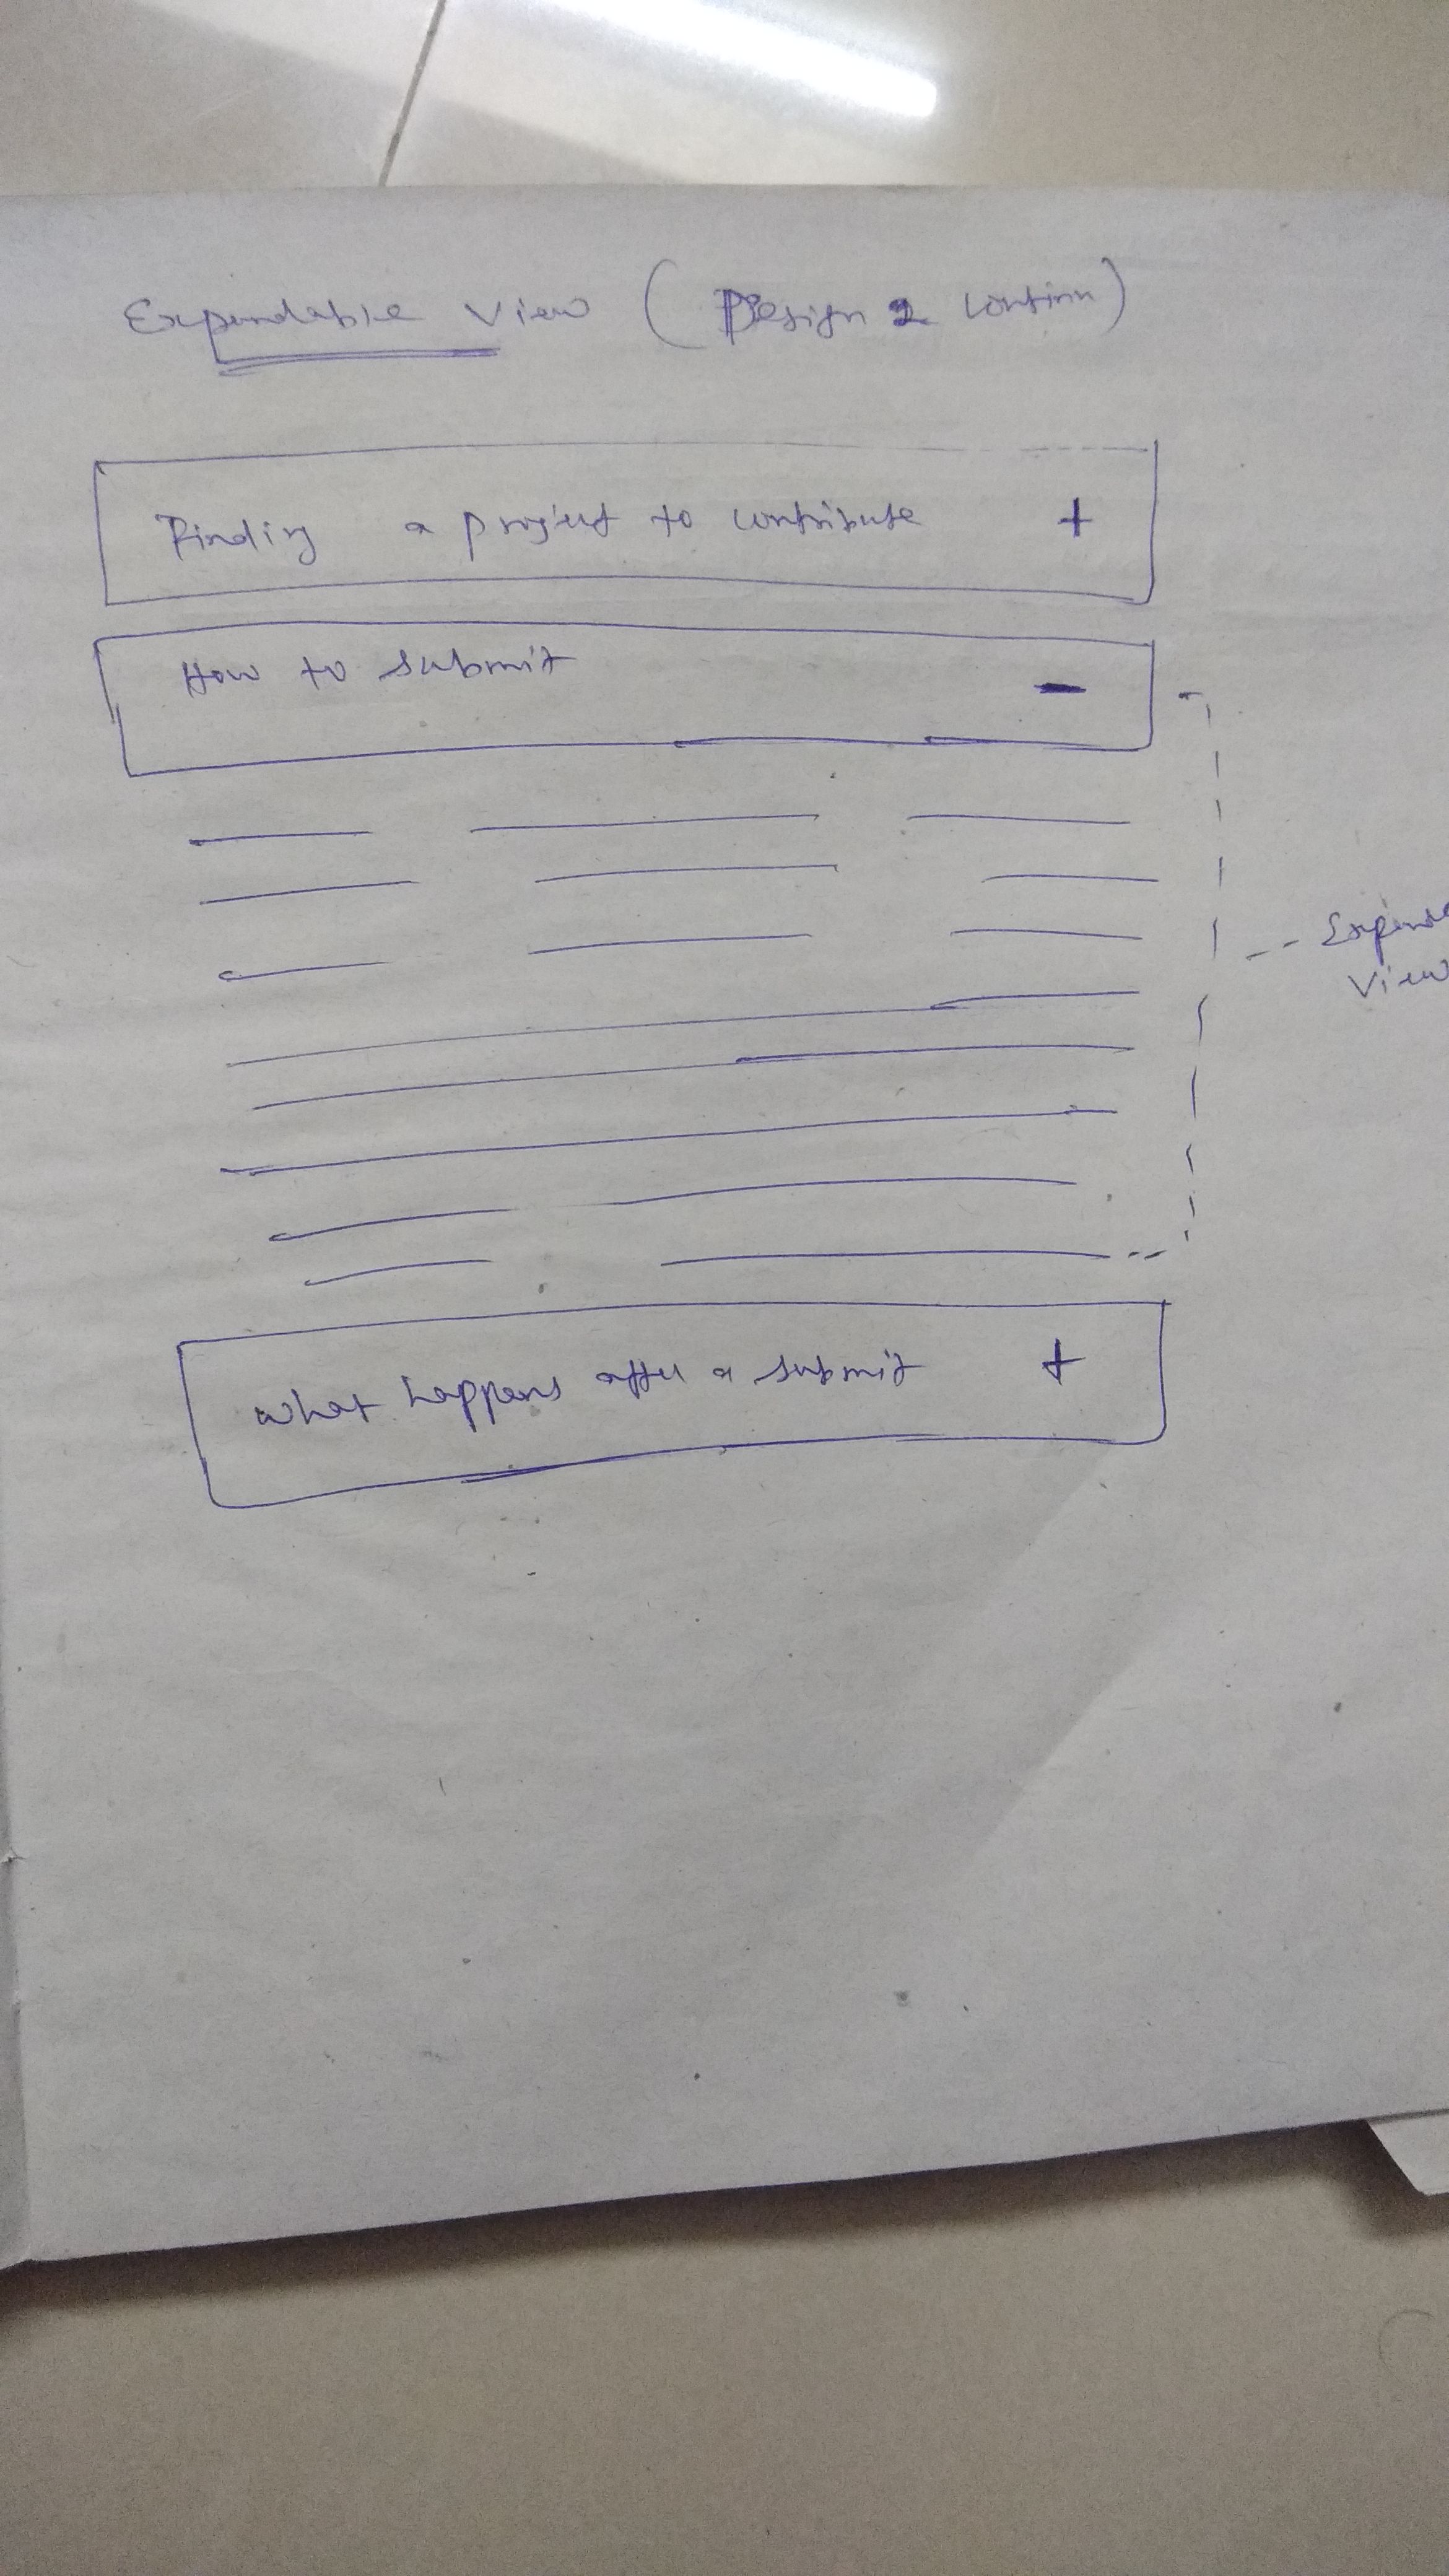 Expendable View (Design 2 continu)
Finding a project to contribute +
How to submit -
Expende
View
What happens after a submit +